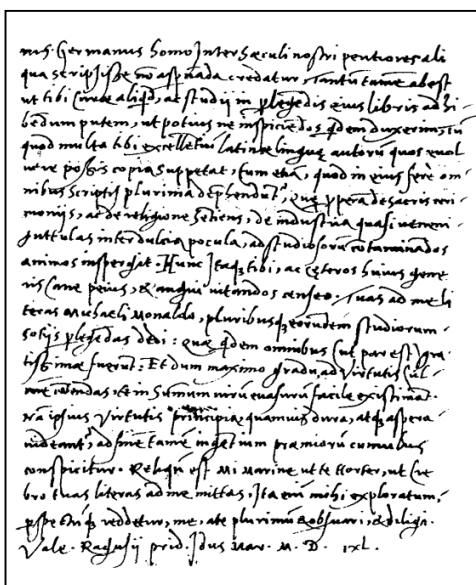 nus Germanus homo inter sæculi nostri peritiores ali
qua scripsisse nō aspernāda credatur, tantū tamē abest
ut tibi curæ aliqd, ac studij in plegēdis eius libris adhi
bēdum putem, ut potius ne inspiciēdos qdem duxerim: sū
quod multa tibi excellētiū latinæ linguæ autorū quos euol
uere possis copia suppetat, tum etiā, quod in eius fere om
nibus scriptis plurima dephendunt', quæ ppera de sacris ceri
monijs, ac de religione sētiens, de industria quasi veneni
guttulas inter dulcia pocula, ad studiosorū cōtaminādos
animos inspergat. Hunc Itaq tibi, ac cæteros huius gene
ris cane peius, & angui vitandos censeo. Tuas ad me li
teras Michaeli Monaldo, pluribusq eorundem studiorum
socijs plegēdas dedi: quæ qdem omnibus (ut par est) gra
tissimæ fuerunt. Et dum maximo gradu, ad Virtutis cul
mē cōtendas, te in sumum virū euasurū facile existimāt.
Nā ipsius Virtutis principia, quamuis dura, atq aspera
videant', ad fine tamē ingētium præmiorū cumulus
conspicitur. Reliqū est Mi Marine ut te horter, ut cre
bro tuas literas ad me mittas, Ita eni mihi exploratum,
pspectūq reddetur, me, a te plurimū & obsuari, & diligi.
Vale. Ragusij prid. Idus Mar. M. D. IXL.